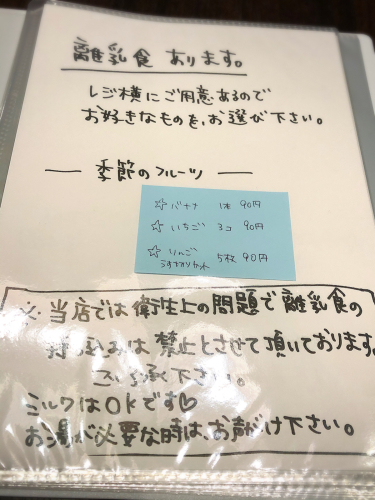 離乳食 あります。
レジ横にご用意あるので
お好きなものを、お選び下さい。
季節のフルーツ
☆バナナ 1本 90円
☆いちご 3コ 90円
☆りんご 5枚 90円
うすすぎりカット
※当店では衛生上の問題で離乳食の
持ち込みは禁止とさせて頂いております。
ご了承下さい。
ミルクはOKです♡
お湯が必要な時は、お声がけ下さい。